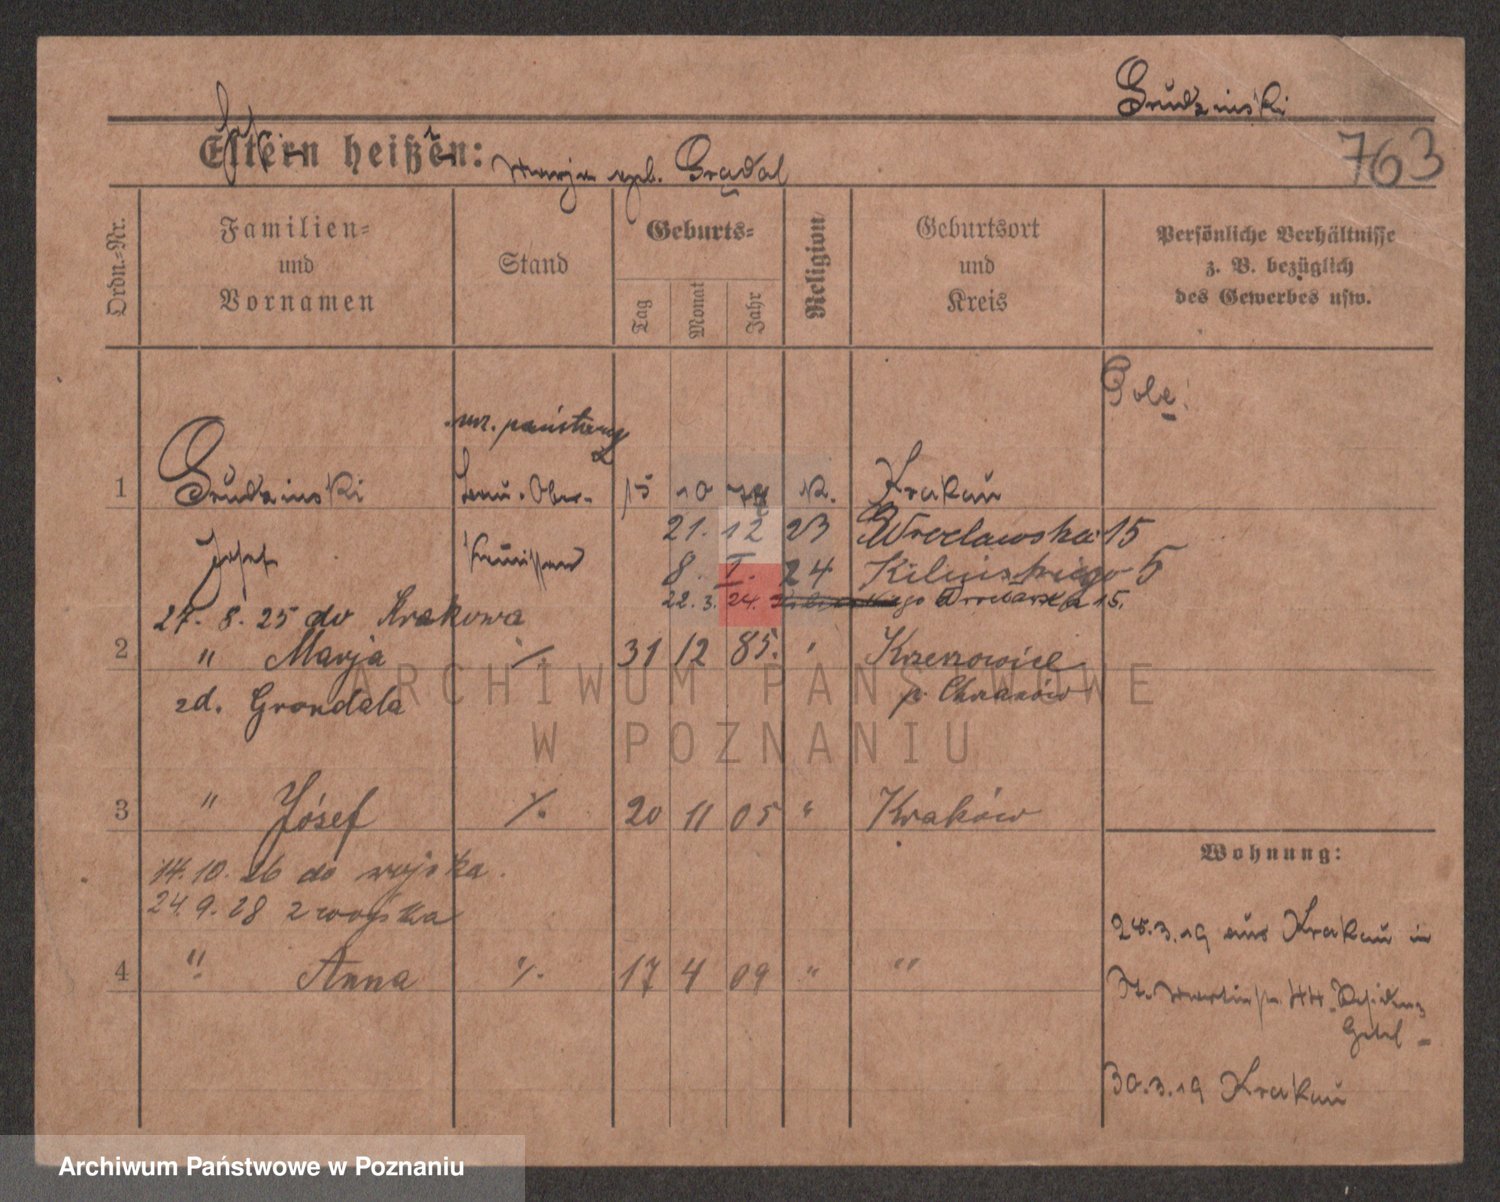 Grudzinski
763
Eltern heißen:
geb. Grądal
Ordn.-Nr.
Familien-
und
Vornamen
Stand
Geburts-
Tag
Monat
Jahr
Religion
Geburtsort
und
Kreis
Persönliche Verhältnisse
z. B. bezüglich
des Gewerbes usw.
Pole
urz. państwowy
1 Grudzinski Ober- 15 10 K. Krakau
21. 12 23 Wrocławska 15
Josef
8. I. 24 Kilińskiego 5
22. 3. 24. 15.
27. 8. 25 do Krakowa
2 " Marja % 31 12 85. " Krzeszowice
p. Chrzanów
zd. Grondala
ARCHIWUM PAŃSTWOWE
W POZNANIU
3 " Józef %. 20 11 05 " Kraków
Wohnung:
14. 10. 26 do wojska.
24. 9. 28 z wojska
28.3.19 aus Krakau in
4 " Anna %. 17 4 09 " "
St. Martinstr. 44
Hotel
30.3.19 Krakau
Archiwum Państwowe w Poznaniu